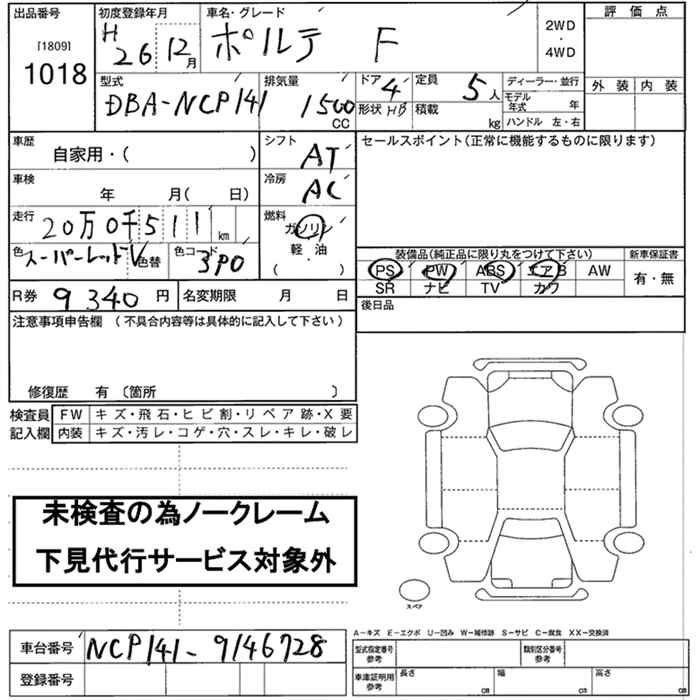 出品番号 初度登録年月 車名・グレード 2WD ・ 4WD 評価点
[1809] 1018 H 26 12月 ポルテ F
外装 内装
型式 排気量 ドア 4 定員 5人 ディーラー・並行
DBA-NCP141 1500 CC 形状 HB 積載 kg モデル年式 年
ハンドル 左・右
車歴 自家用・( ) シフト AT セールスポイント(正常に機能するものに限ります)
車検 年 月( 日) 冷房 AC
走行 20万0千511km 燃料 ガソリン
色 スーパーレッドV 色替 色コード 3P0 軽・油 ( )
装備品(純正品に限り丸をつけて下さい) 新車保証書
PS PW ABS エアB AW 有・無
SR ナビ TV カワ
R券 9340円 名変期限 月 日 後日品
注意事項申告欄 (不具合内容等は具体的に記入して下さい)
修復歴 有 〔箇所 〕
検査員記入欄 FW キズ・飛石・ヒビ割・リペア跡・X要
内装 キズ・汚レ・コゲ・穴・スレ・キレ・破レ
未検査の為ノークレーム
下見代行サービス対象外
スペア
A-キズ E-エクボ U-凹み W-補修跡 S-サビ C-腐食 XX-交換済
車台番号 NCP141-9146728 型式指定番号 参考 類別区分番号 参考
登録番号 車庫証明用 参考 長さ cm 幅 cm 高さ cm